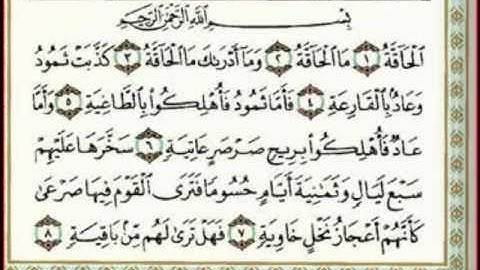 بِسْمِ اللَّهِ الرَّحْمَٰنِ الرَّحِيمِ
الْحَاقَّةُ ١ مَا الْحَاقَّةُ ٢ وَمَا أَدْرَىٰكَ مَا الْحَاقَّةُ ٣ كَذَّبَتْ ثَمُودُ
وَعَادٌ بِالْقَارِعَةِ ٤ فَأَمَّا ثَمُودُ فَأُهْلِكُوا بِالطَّاغِيَةِ ٥ وَأَمَّا
عَادٌ فَأُهْلِكُوا بِرِيحٍ صَرْصَرٍ عَاتِيَةٍ ٦ سَخَّرَهَا عَلَيْهِمْ
سَبْعَ لَيَالٍ وَثَمَٰنِيَةَ أَيَّامٍ حُسُومًا فَتَرَى الْقَوْمَ فِيهَا صَرْعَىٰ
كَأَنَّهُمْ أَعْجَازُ نَخْلٍ خَاوِيَةٍ ٧ فَهَلْ تَرَىٰ لَهُم مِّنۢ بَاقِيَةٍ ٨